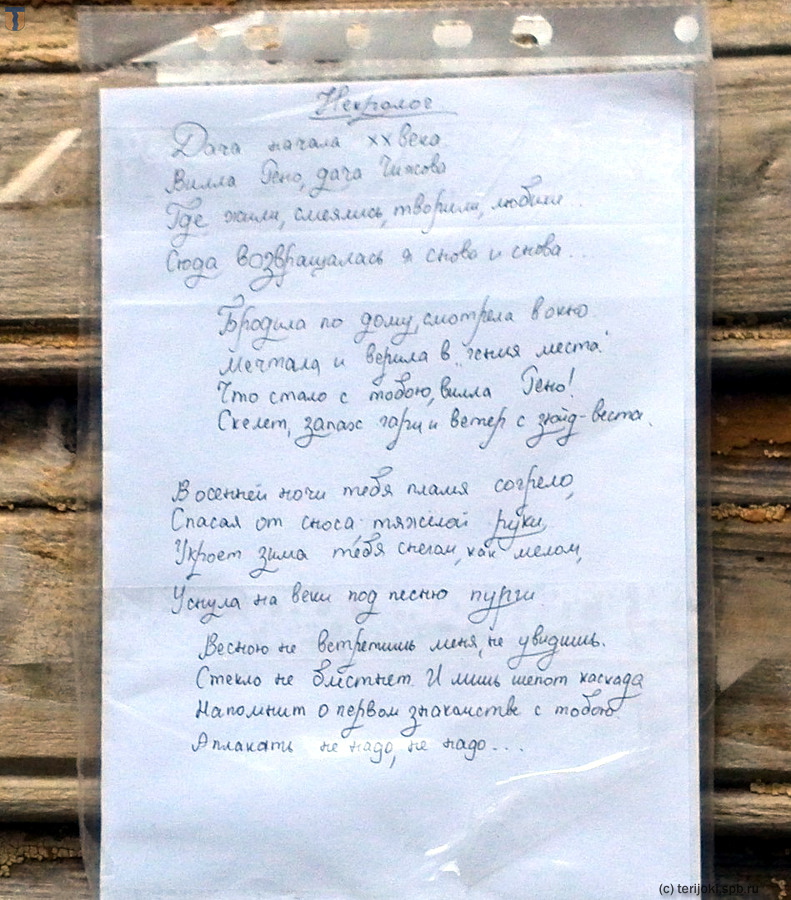 Некролог
Дача начала XX века
Вилла Рено, дача Чижова
Где жили, смеялись, творили, любили...
Сюда возвращалась я снова и снова...
Бродила по дому, смотрела в окно.
Мечтала и верила в "гения места".
Что стало с тобою, вилла Рено!
Скелет, запах гари и ветер с зюйд-веста.
В осенней ночи тебя пламя согрело,
Спасая от сноса тяжёлой руки,
Укроет зима тебя снегом, как мелом,
Уснула на веки под песню пурги.
Весною не встретишь меня, не увидишь.
Стекло не блистнет. И лишь шепот каскада
Напомнит о первом знакомстве с тобою.
А плакать не надо, не надо...
(c) terijoki.spb.ru